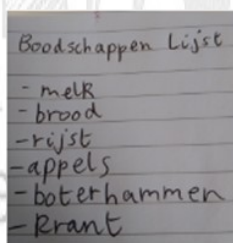 Boodschappen Lijst
- melk
- brood
- rijst
- appels
- boterhammen
- krant